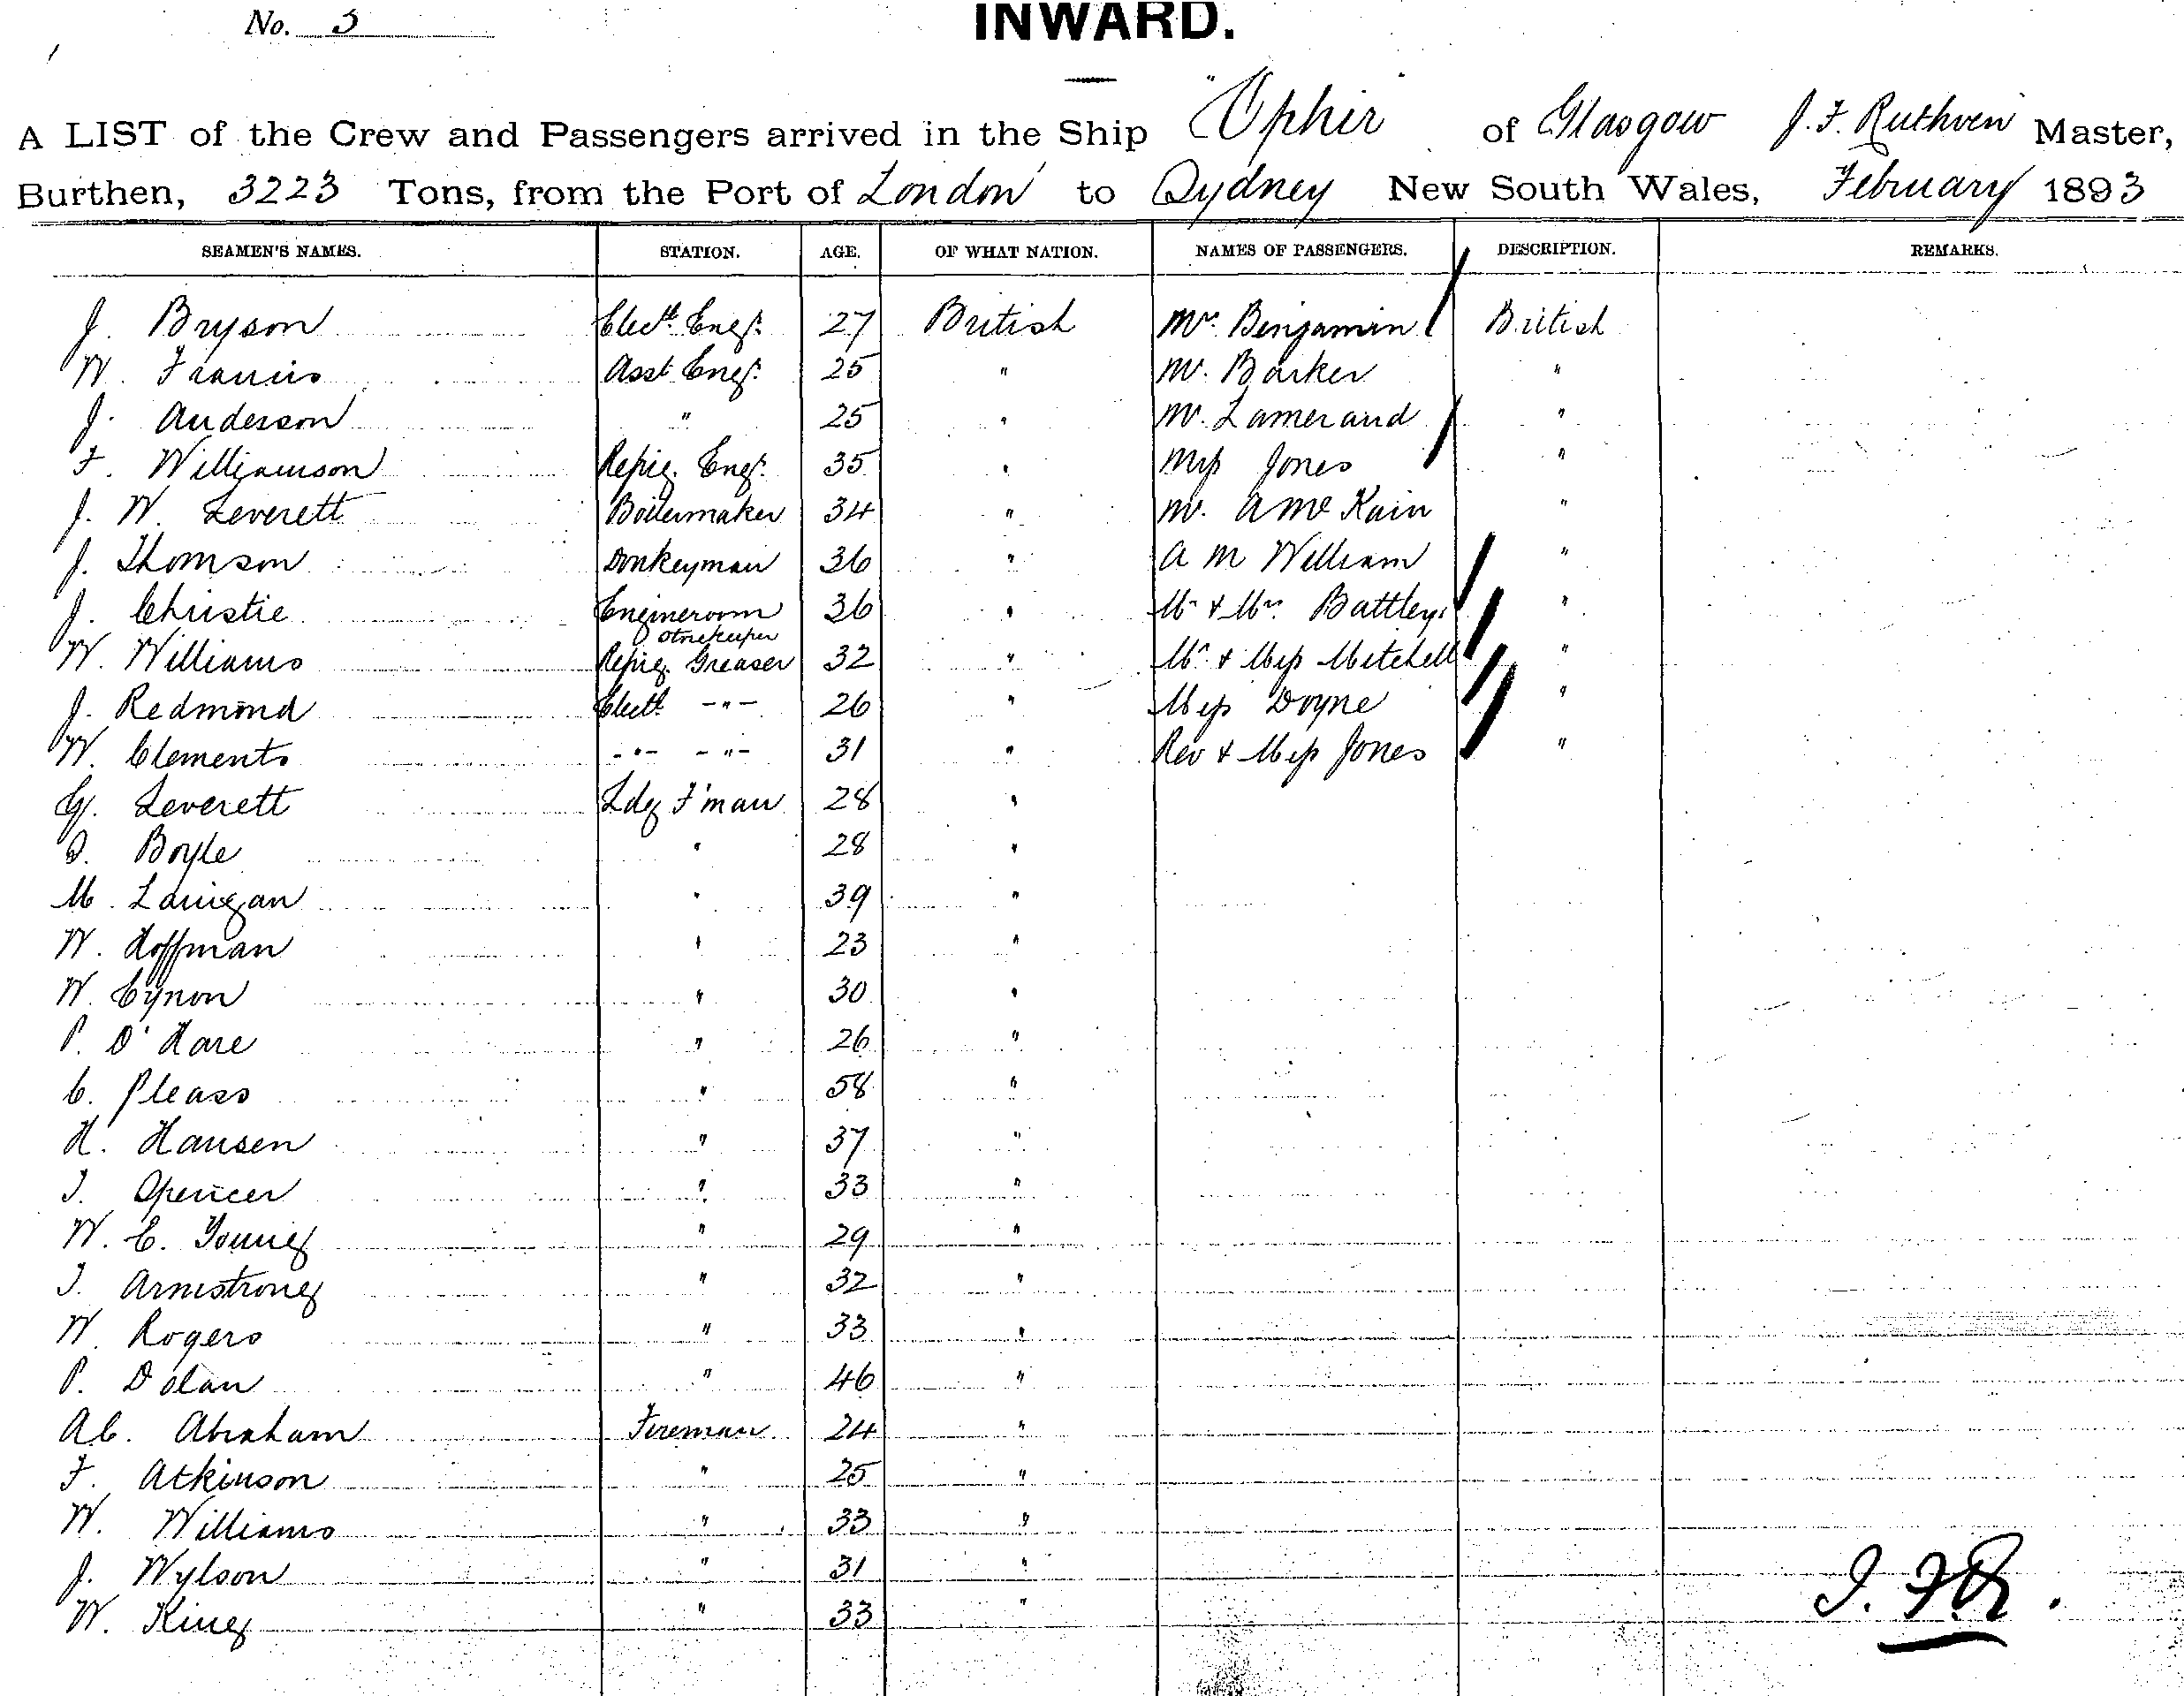 No. 3
INWARD.
A LIST of the Crew and Passengers arrived in the Ship "Ophir of Glasgow J. F. Ruthven Master,
Burthen, 3223 Tons, from the Port of London to Sydney New South Wales, February 1893
SEAMEN'S NAMES. STATION. AGE. OF WHAT NATION. NAMES OF PASSENGERS. DESCRIPTION. REMARKS.
J. Bryson Elect. Engr. 27 British Mr. Benjamin British
W. Francis Asst Engr. 25 " Mr. Barker "
J. Anderson " 25 " Mr. Lamerand "
F. Williamson Refrig. Engr. 35 " Miss Jones "
J. W. Leverett Boilermaker 34 " Mr. A Mc Kain "
J. Thomson Donkeyman 36 " A M William "
J. Christie Engineroom storekeeper 36 " Mr & Mrs Battley "
W. Williams Refrig. Greaser 32 " Mr & Miss Mitchell "
J. Redmond Elect. -"- 26 " Miss Doyne "
W. Clements -"- -"- 31 " Rev & Miss Jones "
G. Leverett Ldg F'man 28 "
D. Boyle " 28 "
M. Lanigan " 39 "
W. Hoffman " 23 "
W. Cynon " 30 "
P. O'Hare " 26 "
C. Pleass " 58 "
H. Hansen " 37 "
J. Spencer " 33 "
W. C. Young " 29 "
J. Armstrong " 32 "
W. Rogers " 33 "
P. Dolan " 46 "
A.C. Abraham Fireman 24 "
F. Atkinson " 25 "
W. Williams " 33 "
J. Wylson " 31 "
W. King " 33 "
J. F. R.